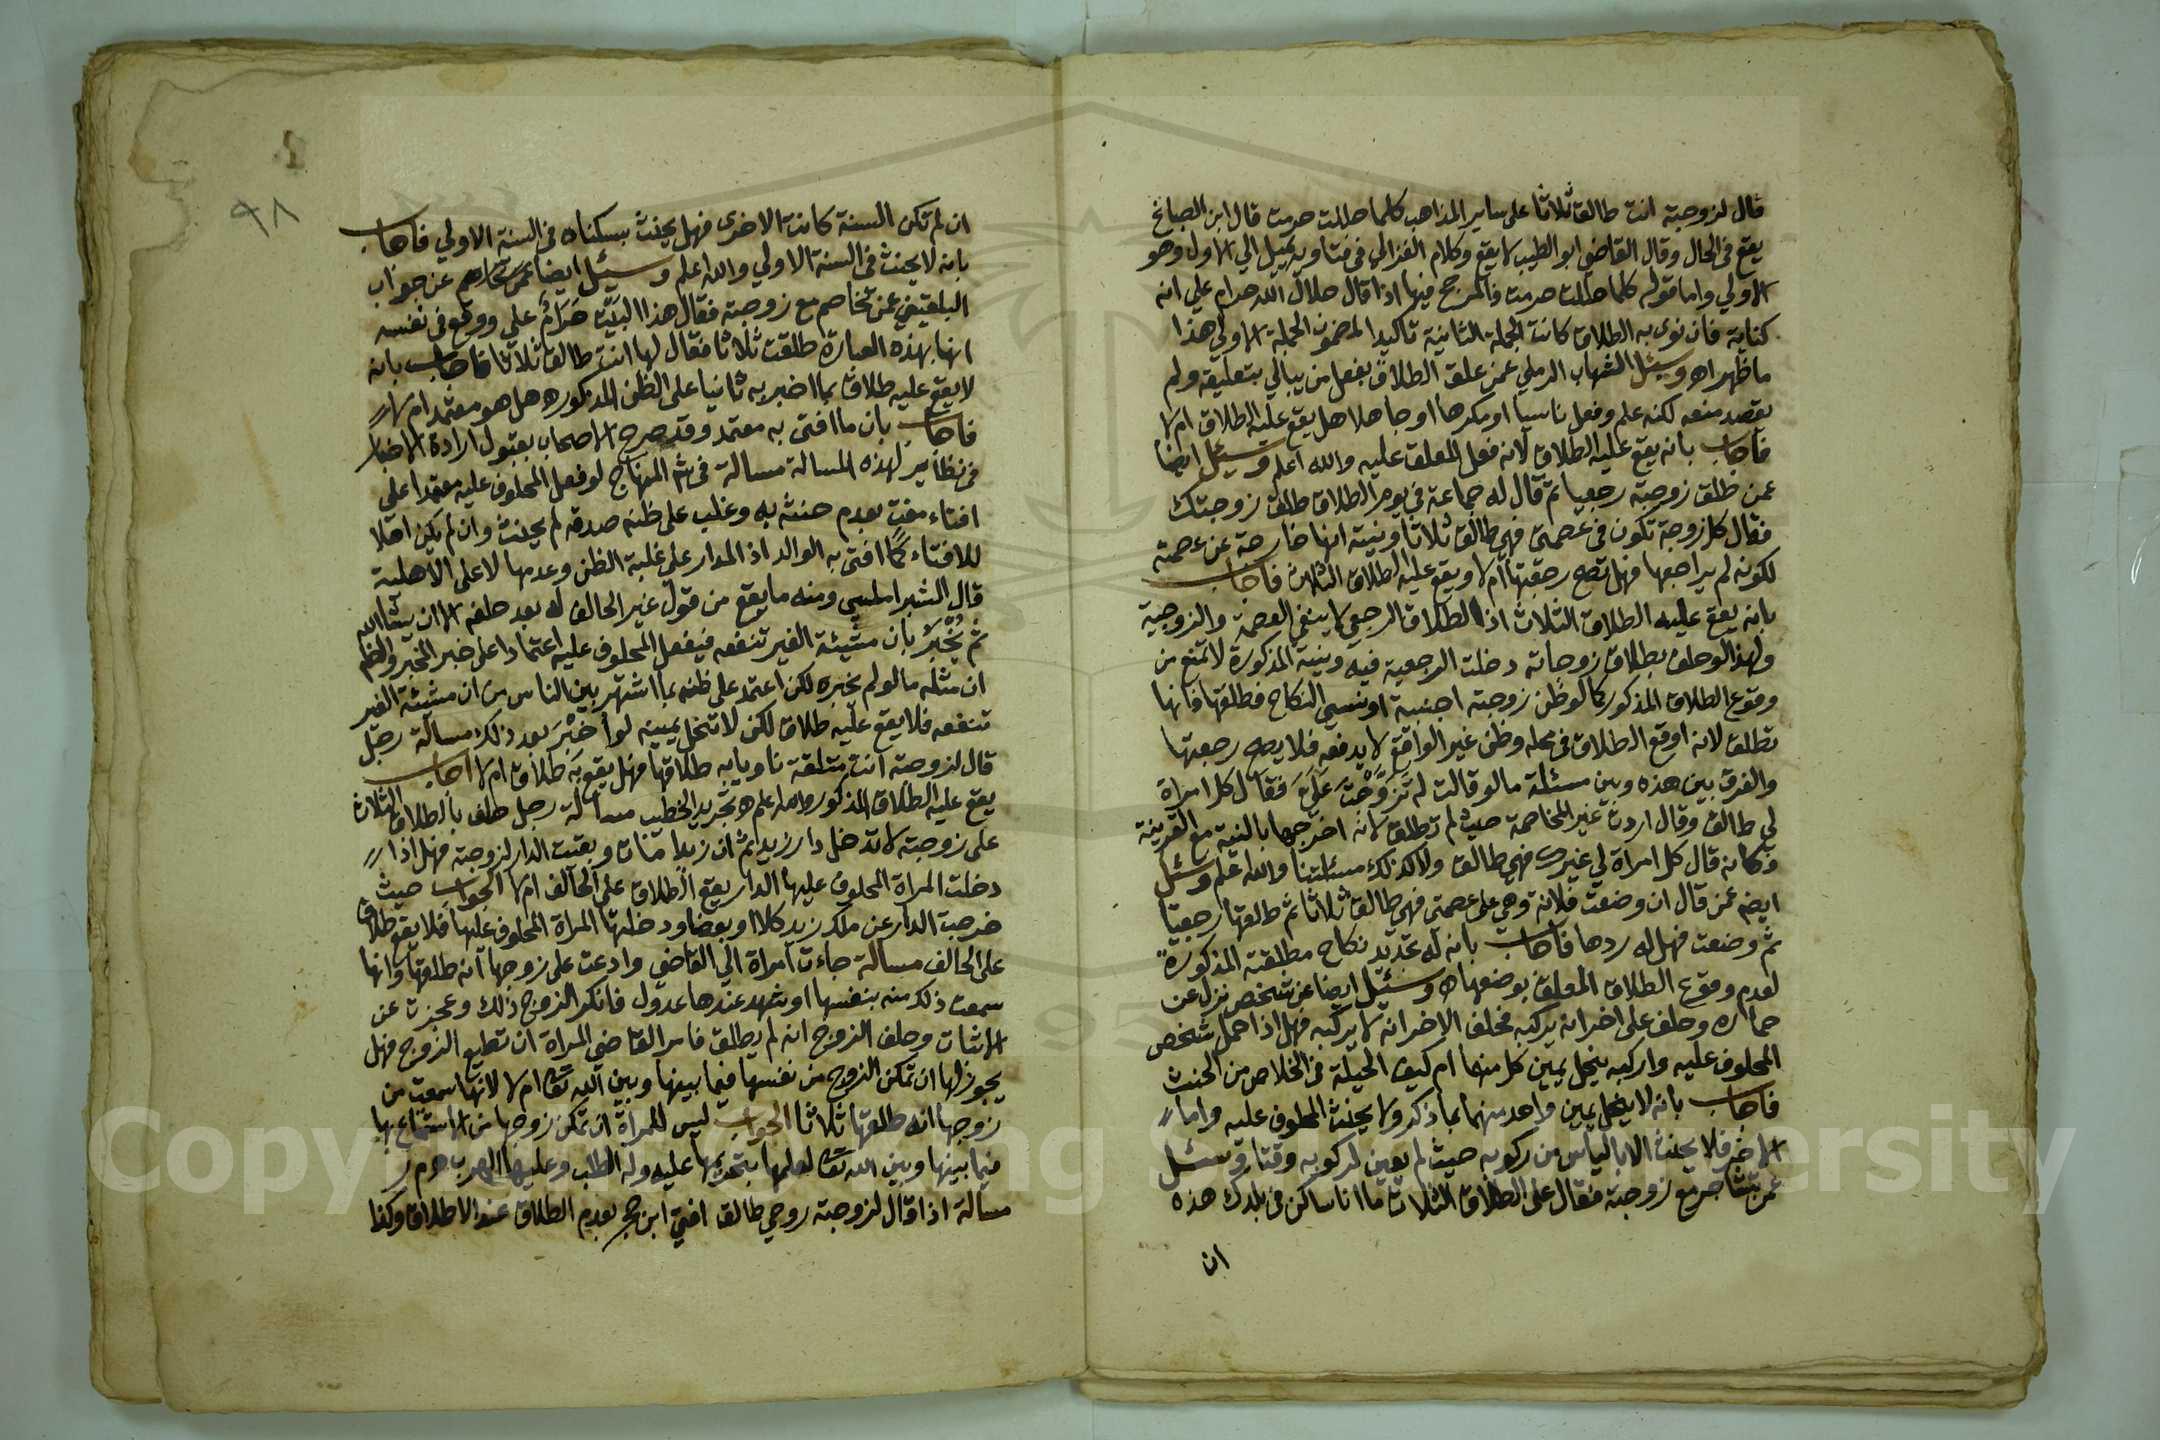 قال لزوجته انت طالق ثلاثا على ساير المذاهب كلما حللت حرمت قال ابن الصباغ
يقع في الحال وقال القاضي ابو الطيب لا يقع وكلام الغزالي في فتاويه يميل الى الاول وهو
الاولي واما قوله كلما حللت حرمت فالمرجح فيها اذا قال حلال الله حرام علي انه
كناية فان نوى به الطلاق كانت الجملة الثانية تاكيدا لمضمون الجملة الاولي هذا
ما ظهر اه وسئل الشهاب الرملي عمن علق الطلاق بفعل من يبالي بتعليقه ولم
يقصد منعه لكنه علم وفعل ناسيا او مكرها او جاهلا هل يقع عليه الطلاق ام لا
فاجاب بانه يقع عليه الطلاق لانه فعل المعلق عليه والله اعلم وسئل ايضا
عمن طلق زوجته رجعيا ثم قال له جماعة في يوم الطلاق طلق زوجتك
فقال كل زوجة تكون في عصمتي فهي طالق ثلاثا ونيته انها خارجة عن عصمته
لكونه لم يراجعها فهل تصح رجعتها ام لا ويقع عليه الطلاق الثلاث فاجاب
بانه يقع عليه الطلاق الثلاث اذ الطلاق الرجعي لا ينفي العصمة والزوجية
ولهذا لو حلف بطلاق زوجاته دخلت الرجعية فيه ونيته المذكورة لا تمنع من
وقوع الطلاق المذكور كما لو ظن زوجته اجنبية او نسي النكاح فطلقها فانها
تطلق لانه اوقع الطلاق في محله وظن غير الواقع لا يدفعه فلا يصح رجعتها
والفرق بين هذه وبين مسئلة ما لو قالت له تَزَوَّجْتَ عَلَيَّ فقال كل امراة
لي طالق وقال اردت غير المخاصمة حيث لم تطلق لانه اخرجها بالنية مع القرينة
فكانه قال كل امراة لي غيرك فهي طالق ولا كذلك مسئلتنا والله اعلم وسئل
ايضا عمن قال ان وضعت فلانة وهي على عصمتي فهي طالق ثلاثا ثم طلقها رجعيا
ثم وضعت فهل له ردها فاجاب بانه له تجديد نكاح مطلقته المذكورة
لعدم وقوع الطلاق المعلق بوضعها اه وسئل ايضا عن شخص نزل عن
حماره وحلف على اخر انه يركبه فحلف الاخر انه لا يركبه فهل اذا حمل شخص
المحلوف عليه واركبه ينحل يمين كل منهما ام كيف الحيلة في الخلاص من الحنث
فاجاب بانه لا ينحل يمين واحد منهما بما ذكر ولا يحنث المحلوف عليه واما
الاخر فلا يحنث الا بالياس من ركوبه حيث لم يعين لركوبه وقتا وسئل
عمن تشاجر مع زوجته فقال على الطلاق الثلاث ما انا ساكن في بلدك هذه
ان
٩٨
ان لم تكن السنة كانت الاخرى فهل يحنث بسكناه في السنة الاولي فاجاب
بانه لا يحنث في السنة الاولي والله اعلم وسئل ايضا عن جواب
البلقيني عن تخاصم مع زوجته فقال هذا البيت حَرَامٌ علي ووقع في نفسه
انها بهذه العبارة طلقت ثلاثا فقال لها انت طالق ثلاثا فاجاب بانه
لا يقع عليه طلاق بما اخبر به ثانيا على الظن المذكور هل هو معتمد ام لا
فاجاب بان ما افتى به معتمد وقد صرح الاصحاب بقبول ارادة الاخبار
في نظاير لهذه المسالة مسالة في ش المنهاج لو فعل المحلوف عليه معتمدا على
افتاء مفتٍ بعدم حنثه به وغلب على ظنه صدقه لم يحنث وان لم يكن اهلا
للافتاء كما افتى به الوالد اذ المدار على غلبة الظن وعدمها لا على الاهلية
قال الشبراملسي ومنه ما يقع من قول غير الحالف له بعد حلفه الا ان يشا الله
ثم يُخْبَرُ بان مشيئة الغير تنفعه فيفعل المحلوف عليه اعتمادا على خبر المخبر والظم
ان مثله ما لو لم يخبره لكن اعتمد على ظنه بما اشتهر بين الناس من ان مشيئة الغير
تنفعه فلا يقع عليه طلاق لكن لا تنحل يمينه لو اُخْبِرَ بعد ذلك مسألة رجل
قال لزوجته انت متلقة ناويا به طلاقها فهل يقع به طلاق ام لا اجاب
يقع عليه الطلاق المذكور والله اعلم اه تجريد الخطيب مسالة رجل حلف بالطلاق الثلاث
على زوجته لا تدخل دار زيد ثم ان زيدا مات وبقيت الدار لزوجته فهل اذا
دخلت المراة المحلوف عليها الدار يقع الطلاق على الحالف ام لا الجواب حيث
خرجت الدار عن ملك زيد كلا او بعضا ودخلتها المراة المحلوف عليها فلا يقع طلاق
على الحالف مسالة جاءت امراة الى القاضي وادعت على زوجها انه طلقها وانها
سمعت ذلك منه بنفسها او شهد عندها عدول فانكر الزوج ذلك وعجزت عن
الاثبات وحلف الزوج انه لم يطلق فامر القاضي المراة ان تطيع الزوج فهل
يجوز لها ان تمكن الزوج من نفسها فيما بينها وبين الله تعا ام لا لانها سمعت من
زوجها انه طلقها ثلاثا الجواب ليس للمراة ان تمكن زوجها من الاستمتاع بها
فيما بينها وبين الله تعا لعلمها بتحريمها عليه وله الطلب وعليها الهرب اه م ر
مسالة اذا قال لزوجته روحي طالق افتي ابن حجر بعدم الطلاق عند الاطلاق وكذا
Copyright © King Saud University